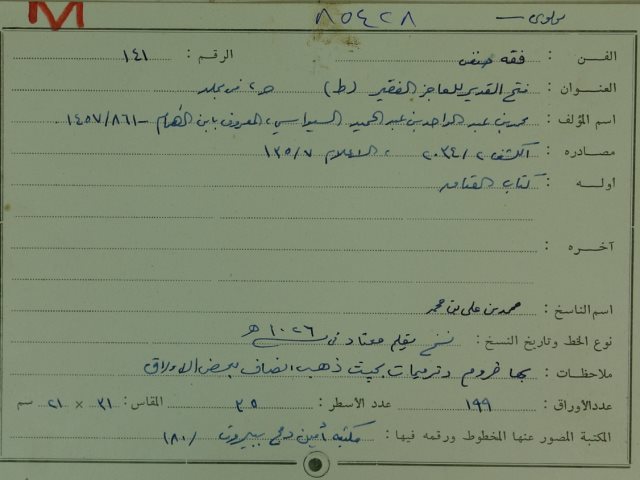 ٨٥٤٢٨
الفـن : فقه حنفي الرقم : ١٤١
العنـوان : فتح القدير للعاجز الفقير (ط)
اسم المؤلف : محمد بن عبد الواحد بن عبد الحميد السيواسي، المعروف بابن الهمام - ٨٦١/١٤٥٧
مصـادره : الكشف ٢٠٣٤/٢ ، الاعلام ١٣٥/٧
اولـه : كتاب القضاء
آخـره :
اسم الناسخ : محمد بن علي بن محمد
نوع الخط وتاريخ النسخ : نسخ بقلم معتاد في ١٠٢٦ هـ
ملاحظات : بها خروم وترميمات بحيث ذهب انصاف بعض الاوراق
عدد الأوراق : ١٩٩ عدد الأسطر : ٣٥ المقاس : ٣١ × ٢١ سم
المكتبة المصور عنها المخطوط ورقمه فيها : مكتبة أمين دمج ببيروت /١٨٠